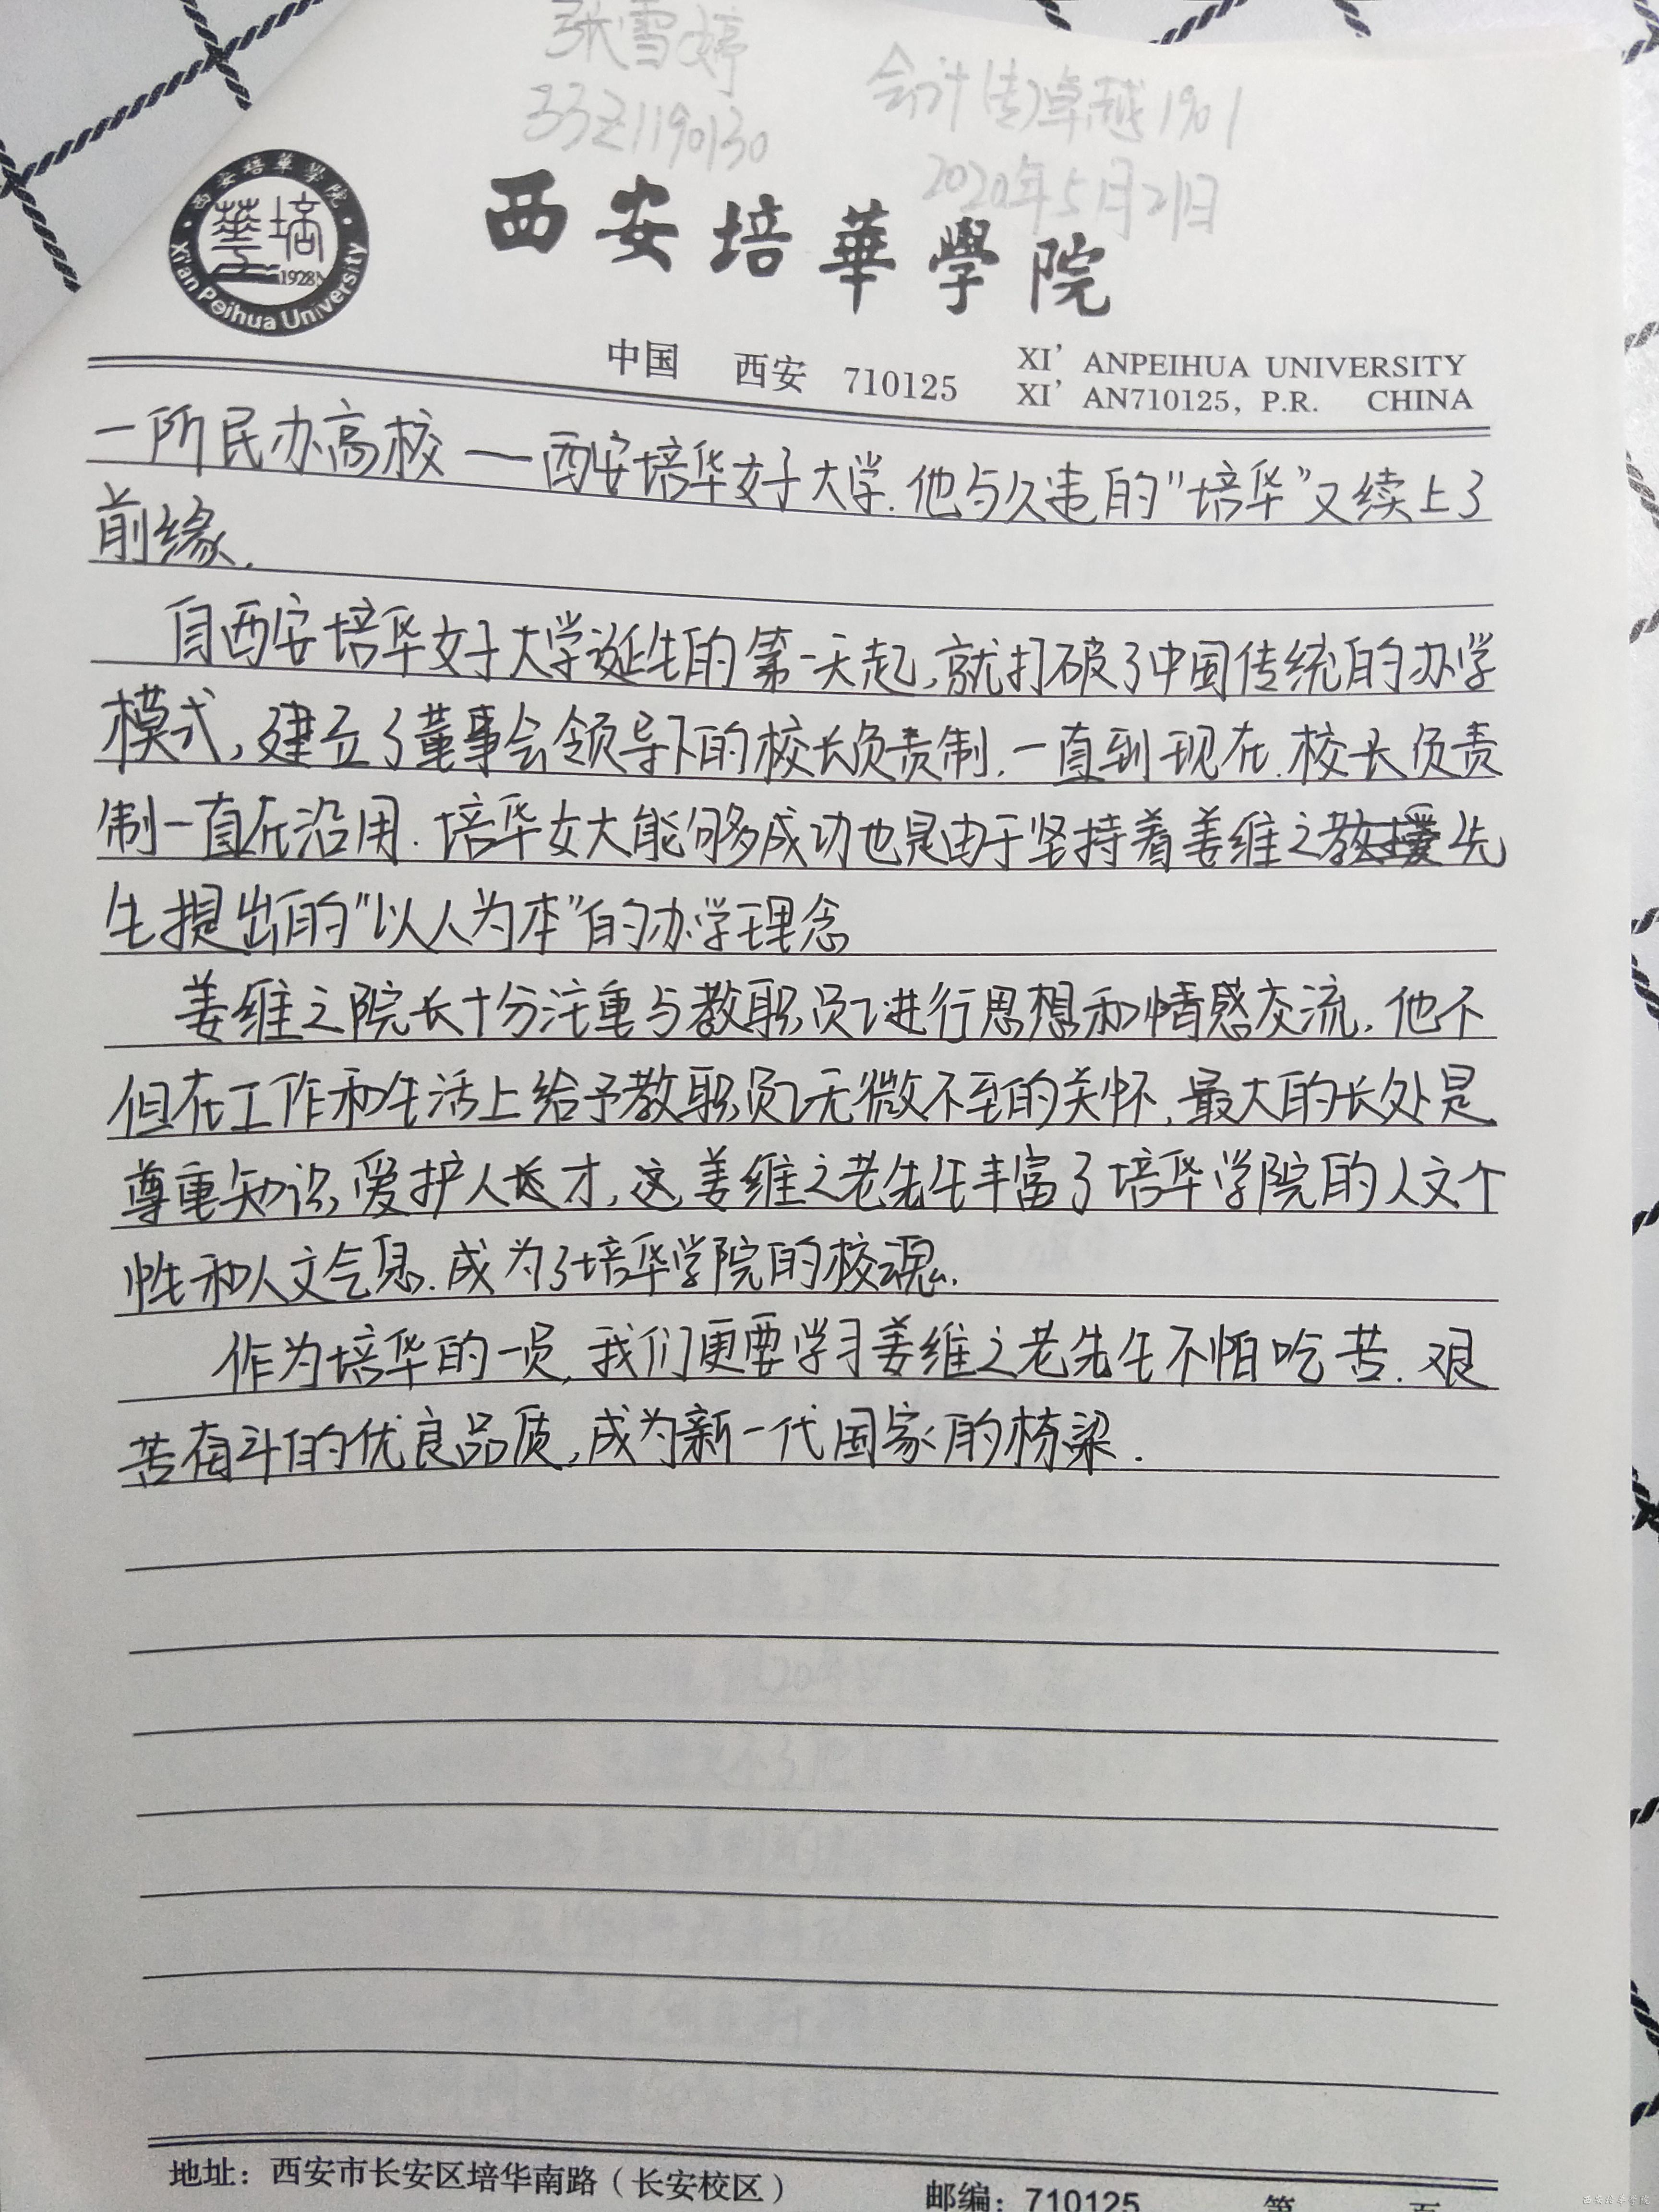 张雪婷
33Z1190130
会计(专)卓越1901
2020年5月21日
西安培華學院
華培
1928
Xi'an Peihua University
西安培華學院
中国 西安 710125
XI' ANPEIHUA UNIVERSITY
XI' AN710125, P.R. CHINA
一所民办高校——西安培华女子大学.他与久违的"培华"又续上了
前缘.
自西安培华女子大学诞生的第一天起,就打破了中国传统的办学
模式,建立了董事会领导下的校长负责制.一直到现在.校长负责
制一直在沿用.培华女大能够多成功也是由于坚持着姜维之先
生提出的"以人为本"的办学理念
姜维之院长十分注重与教职员工进行思想和情感交流.他不
但在工作和生活上给予教职员工无微不至的关怀,最大的长处是
尊重知识,爱护人才,这姜维之老先生丰富了培华学院的人文个
性和人文气息.成为了培华学院的校魂.
作为培华的一员,我们更要学习姜维之老先生不怕吃苦.艰
苦奋斗的优良品质,成为新一代国家的栋梁.
地址：西安市长安区培华南路（长安校区）
邮编：710125
第 页
西安培华学院